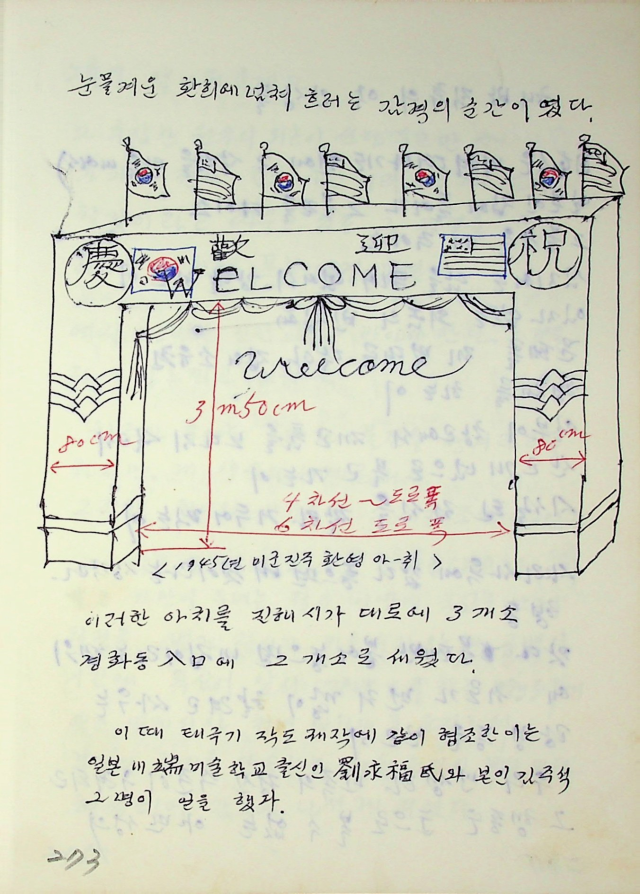 눈물겨운 환희에 넘쳐 흐르는 감격의 순간이 였다.
歡 迎
慶 WELCOME 祝
Welcome
3m50cm
80cm 80cm
4차선 ~ 도로폭
6차선 도로 폭
< 1945년 미군진주 환영 아-취 >
이러한 아치를 진해 시가 대로에 3개소
경화동 入口에 2개소로 세웠다.
이 때 태극기 작도 제작에 같이 협조한 이는
일본 川端미술학교 출신인 劉永福氏와 본인 김주석
2명이 일을 했다.
273